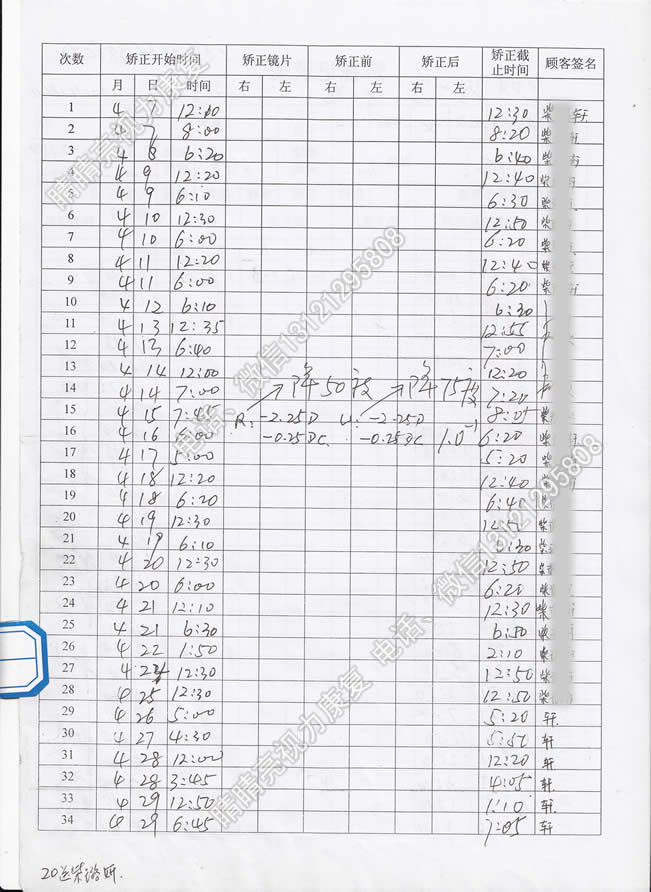 次数 矫正开始时间 矫正镜片 矫正前 矫正后 矫正截止时间 顾客签名
月 日 时间 右 左 右 左 右 左
1 4 7 12:00 12:30 柴 轩
2 4 7 8:00 8:20 柴
3 4 8 6:20 6:40 柴
4 4 9 12:20 12:40 柴
5 4 9 6:10 6:30 柴
6 4 10 12:30 12:50 柴
7 4 10 6:00 6:20 柴
8 4 11 12:20 12:40 柴
9 4 11 6:00 6:20 柴
10 4 12 6:10 6:30
11 4 13 12:35 12:55
12 4 13 6:40 7:00
13 4 14 12:00 12:20
14 4 14 7:00 降50度 降75度 7:20
15 4 15 7:45 R: -2.25D -2.25D 8:05 柴
16 4 16 6:00 -0.25DC -0.25DC 1.0⁻¹ 6:20 柴
17 4 17 5:00 5:20 柴
18 4 18 12:20 12:40 柴
19 4 18 6:20 6:40 柴
20 4 19 12:30 柴
21 4 19 6:10 6:30 柴
22 4 20 12:30 12:50 柴
23 4 20 6:00 6:20 柴
24 4 21 12:10 12:30 柴
25 4 21 6:30 6:50 柴
26 4 22 1:50 2:10 柴
27 4 12:30 12:50 柴
28 4 25 12:30 12:50 柴
29 4 26 5:00 5:20 轩
30 4 27 4:30 轩
31 4 28 12:00 12:20 轩
32 4 28 3:45 4:05 轩
33 4 29 12:50 1:10 轩
34 4 29 6:45 7:05 轩
20送柴
睛睛亮视力康复 电话、微信13121295808
睛睛亮视力康复 电话、微信13121295808